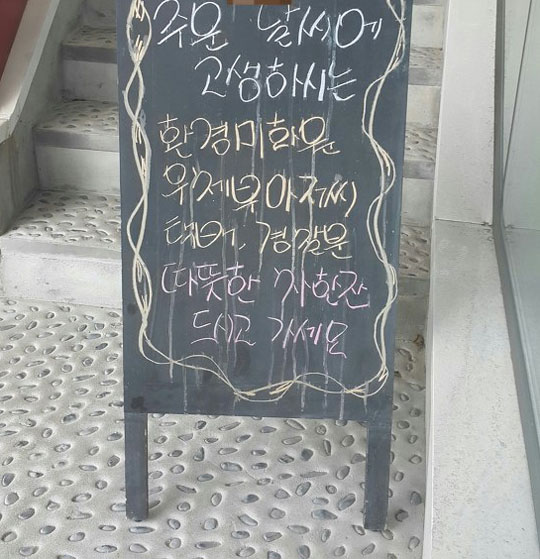 추운 날씨에
고생하시는
환경미화원
우체부아저씨
택배, 경찰분
따뜻한 차한잔
드시고 가세요